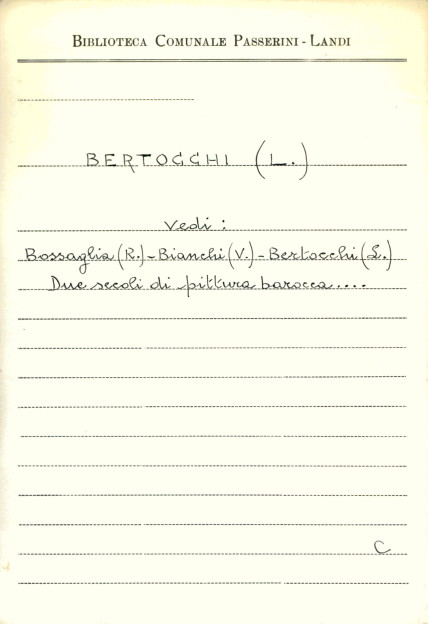 BIBLIOTECA COMUNALE PASSERINI - LANDI
BERTOCCHI (L.)
Vedi :
Bossaglia (R.) - Bianchi (V.) - Bertocchi (L.)
Due secoli di pittura barocca....
C